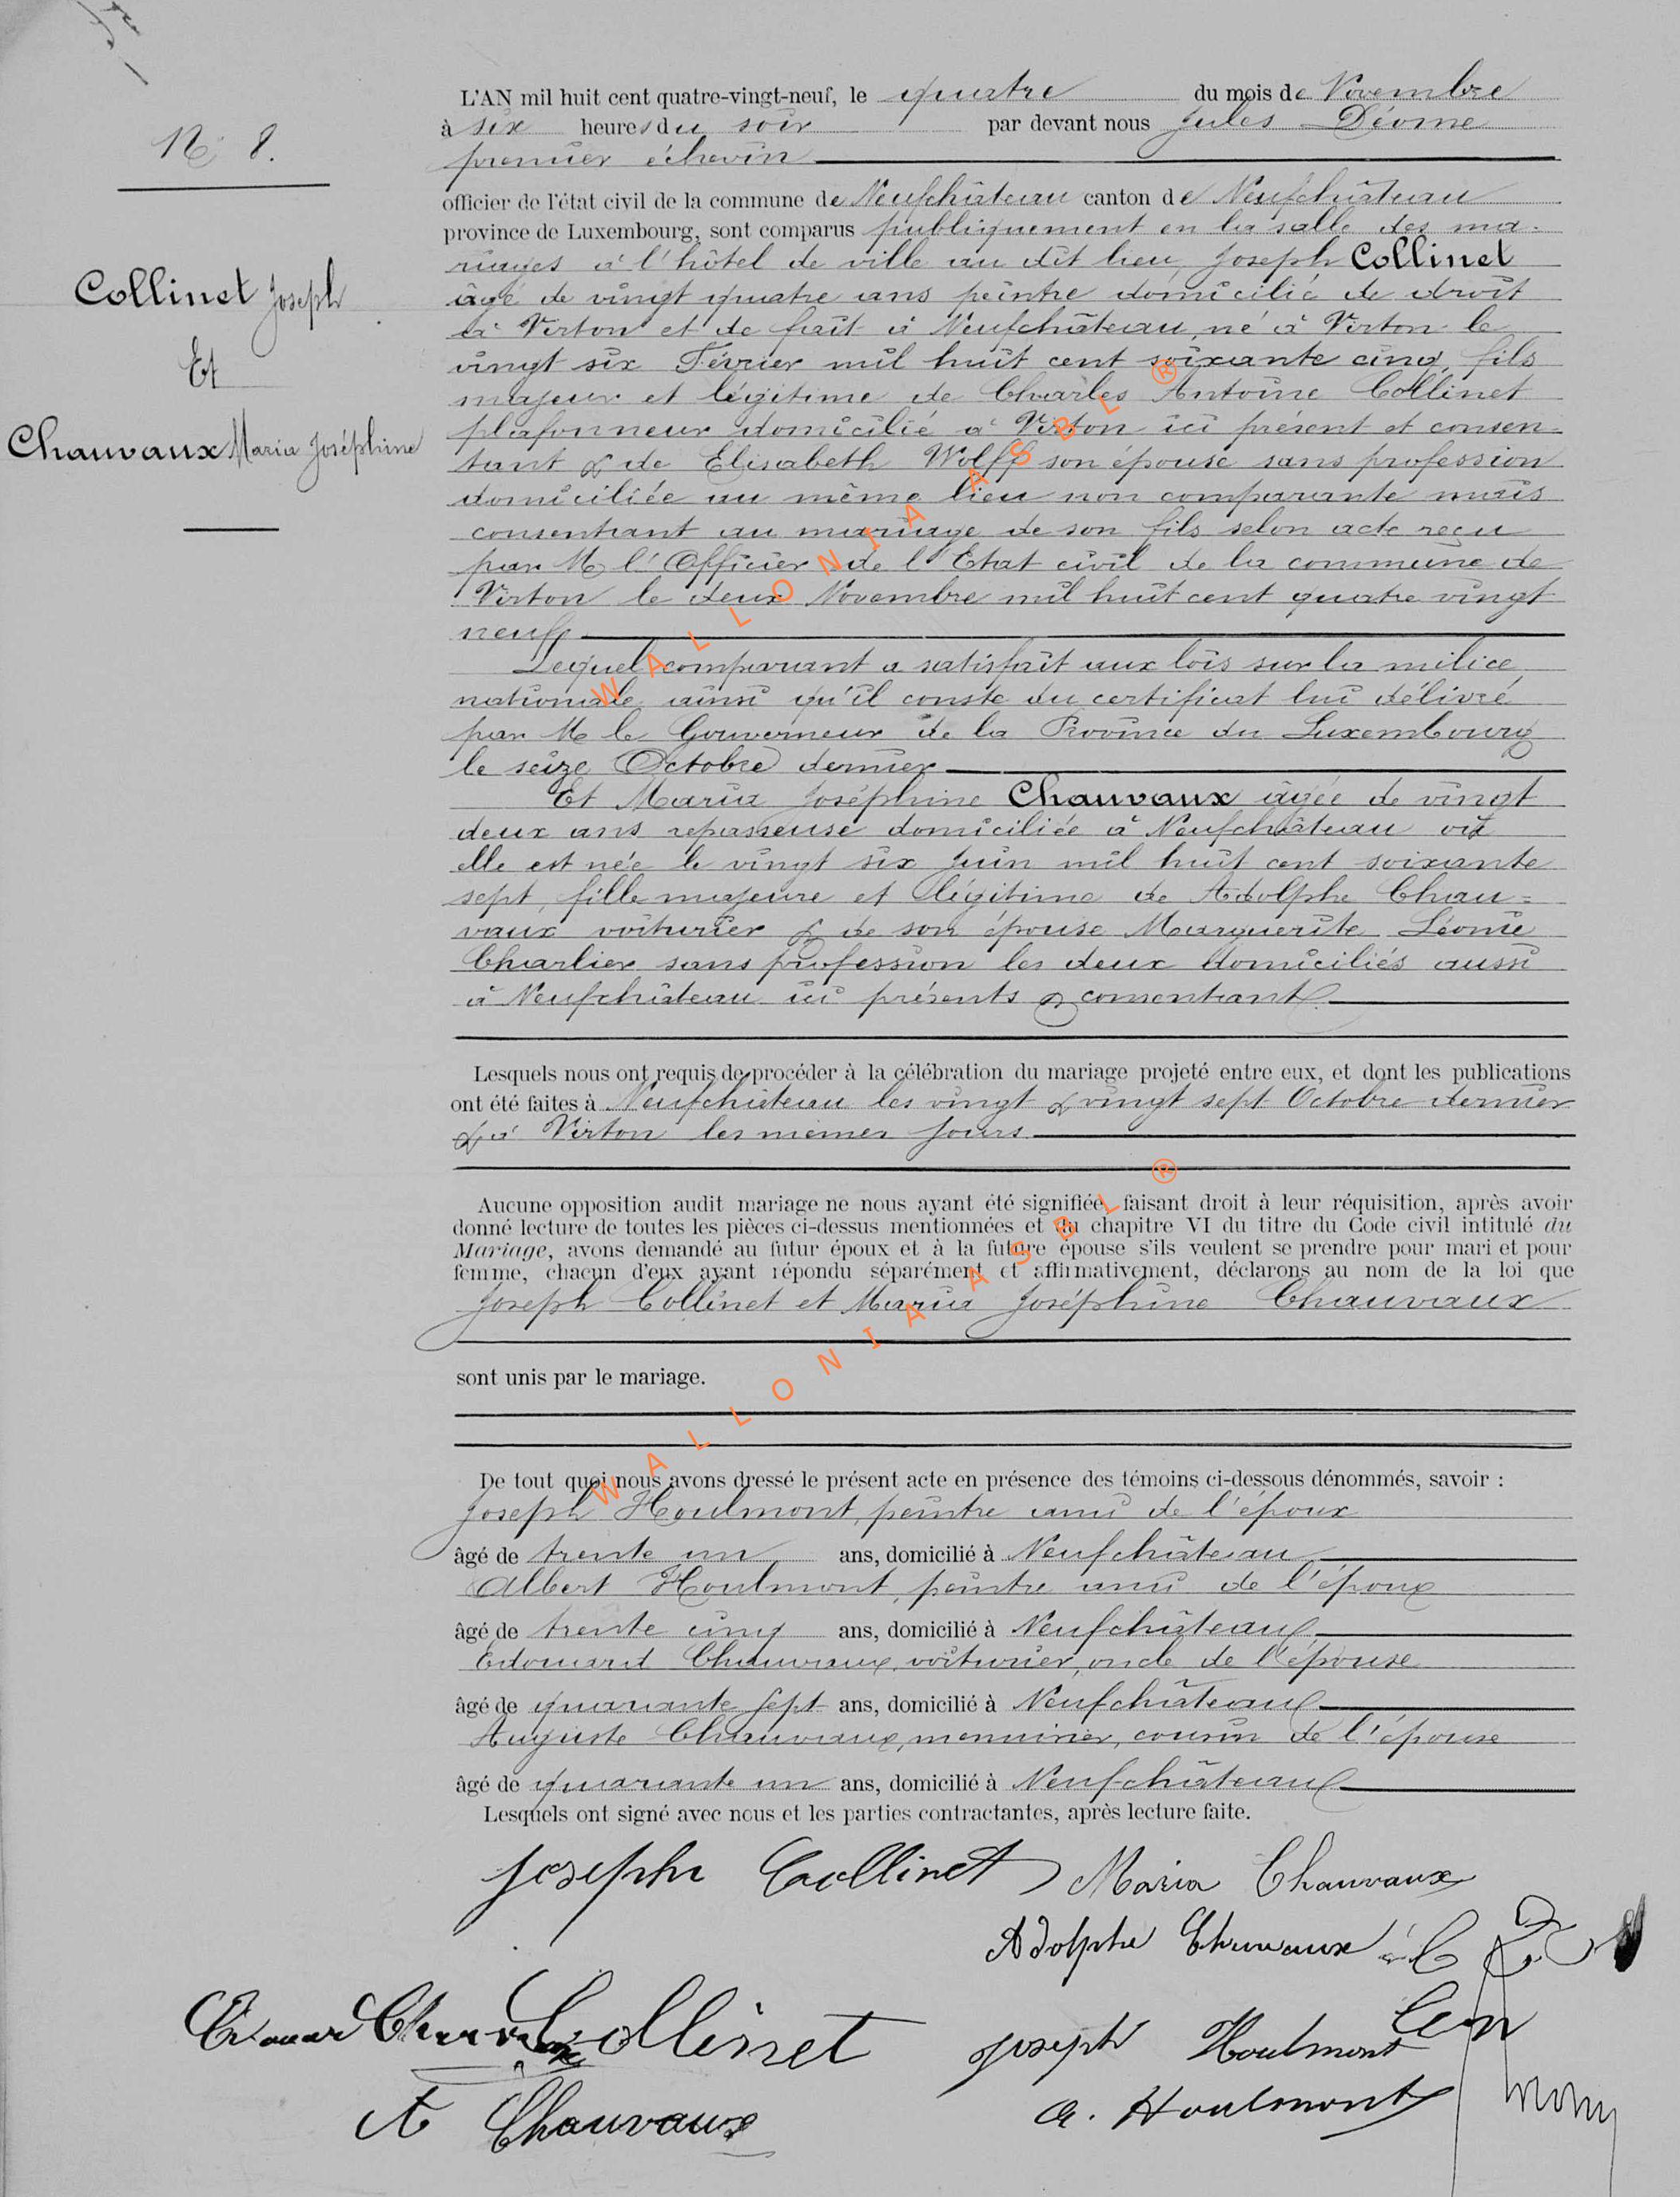 L'AN mil huit cent quatre-vingt-neuf, le quatre du mois de Novembre
à six heures du soir par devant nous Jules Déome
premier échevin
N° 8.
officier de l'état civil de la commune de Neufchâteau canton de Neufchâteau
province de Luxembourg, sont comparus publiquement en la salle des ma-
riages à l'hôtel de ville au dit lieu, Joseph Collinet
Collinet Joseph
Et
Chauvaux Maria Joséphine
âgé de vingt quatre ans peintre domicilié de droit
à Virton et de fait à Neufchâteau, né à Virton le
vingt six Février mil huit cent soixante cinq, fils
majeur et légitime de Charles Antoine Collinet
plafonneur domicilié à Virton ici présent et consen-
tant & de Elisabeth Wolff son épouse sans profession
domiciliée au même lieu non comparante mais
consentant au mariage de son fils selon acte reçu
par M l'Officier de l'Etat civil de la commune de
Virton le deux Novembre mil huit cent quatre vingt
neuf
Lequel comparant a satisfait aux lois sur la milice
nationale ainsi qu'il conste du certificat lui délivré
par M le Gouverneur de la Province du Luxembourg
le seize Octobre dernier
Et Maria Joséphine Chauvaux âgée de vingt
deux ans repasseuse domiciliée à Neufchâteau où
elle est née le vingt six Juin mil huit cent soixante
sept, fille majeure et légitime de Adolphe Chau=
vaux voiturier & de son épouse Marguerite Léonie
Charlier sans profession les deux domiciliés aussi
à Neufchâteau ici présents & consentant
Lesquels nous ont requis de procéder à la célébration du mariage projeté entre eux, et dont les publications
ont été faites à Neufchâteau les vingt & vingt sept Octobre dernier
& à Virton les mêmes jours.
Aucune opposition audit mariage ne nous ayant été signifiée, faisant droit à leur réquisition, après avoir
donné lecture de toutes les pièces ci-dessus mentionnées et du chapitre VI du titre du Code civil intitulé du
Mariage, avons demandé au futur époux et à la future épouse s'ils veulent se prendre pour mari et pour
femme, chacun d'eux ayant répondu séparément et affirmativement, déclarons au nom de la loi que
Joseph Collinet et Maria Joséphine Chauvaux
sont unis par le mariage.
De tout quoi nous avons dressé le présent acte en présence des témoins ci-dessous dénommés, savoir :
Joseph Houlmont, peintre ami de l'époux
âgé de trente un ans, domicilié à Neufchâteau
Albert Houlmont, peintre ami de l'époux
âgé de trente cinq ans, domicilié à Neufchâteau
Edouard Chauvaux, voiturier, oncle de l'épouse
âgé de quarante sept ans, domicilié à Neufchâteau
Auguste Chauvaux, menuisier, cousin de l'épouse
âgé de quarante un ans, domicilié à Neufchâteau
Lesquels ont signé avec nous et les parties contractantes, après lecture faite.
Joseph Collinet Maria Chauvaux
Adolphe Chauvaux
Collinet Joseph Houlmont
A Chauvaux A. Houlmont
WALLONIA ASBL ®
WALLONIA ASBL ®